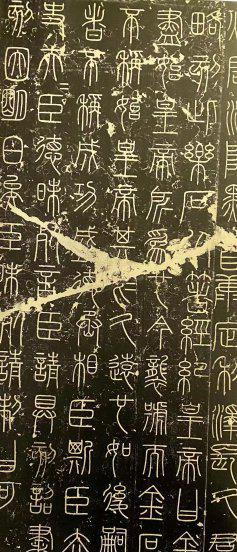 滅除黔首康定利澤長久群
略刻此樂石以著經紀皇帝曰金
盡始皇帝所為也今襲號而金石
不稱始皇帝其於久遠也如後嗣
者不稱成功盛德丞相臣斯臣去
史夫臣德昧死言臣請具刻詔書
刻因明白矣臣昧死請制曰可